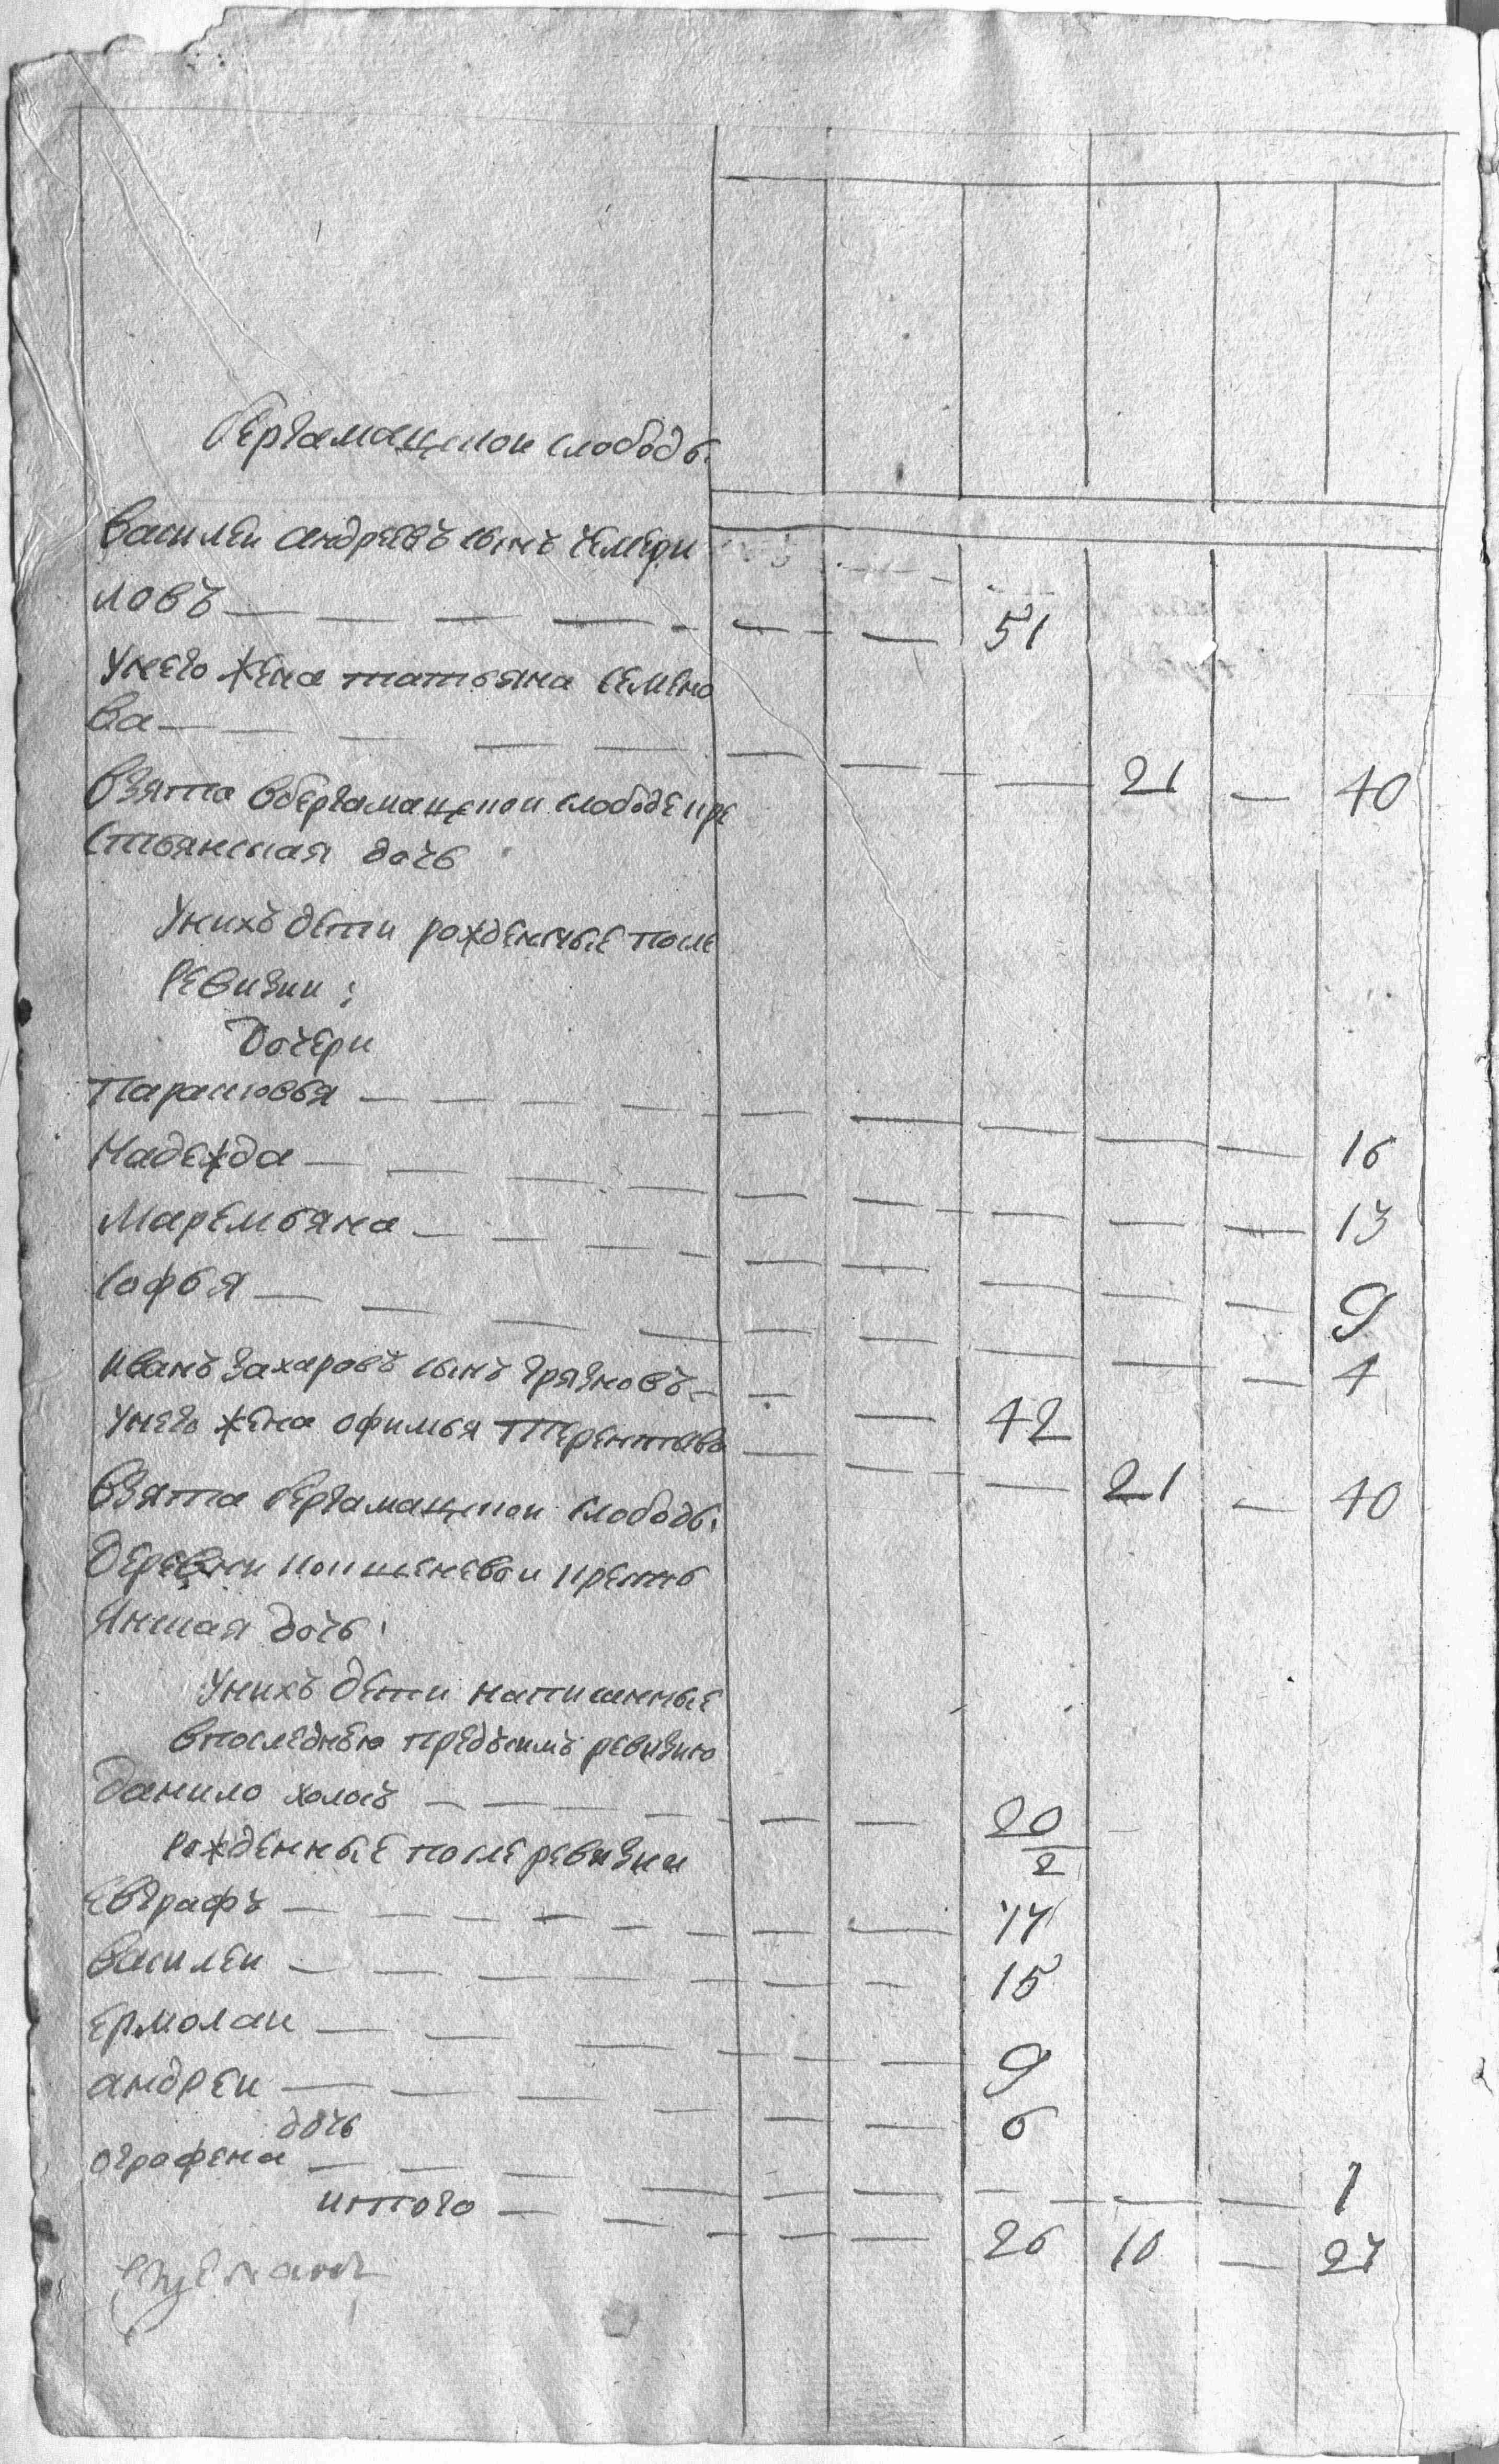 Бергамацкои слободы
Василеи андреевъ сынъ чемери
ловъ — — — — — — 51
унего жена татьяна семено
ва — — — — — — — 21 — 40
взята вбергамацкои слободе кре
стьянская дочь
унихъ дети рожденные после
ревизии:
дочери
Парасковья — — — — — — — 16
Надежда — — — — — — — 13
Маремьяна — — — — — — — 9
софья — — — — — — — 4
иванъ захаровъ сынъ грязновъ — — — 42
унего жена офимья терентьева — — — 21 — 40
взята бергамацкои слободы
деревни кокшеневои кресть
янская дочь
унихъ дети написанные
впоследнею предъсимъ ревизию
данило холостъ — — — — — — 20
2
рожденные после ревизии
евграфъ — — — — — — 17
василеи — — — — — — 15
ермолаи — — — — — — 9
андреи — — — — — — 6
дочь
ографена — — — — — — — 1
итого — — — — — 26 10 — 27